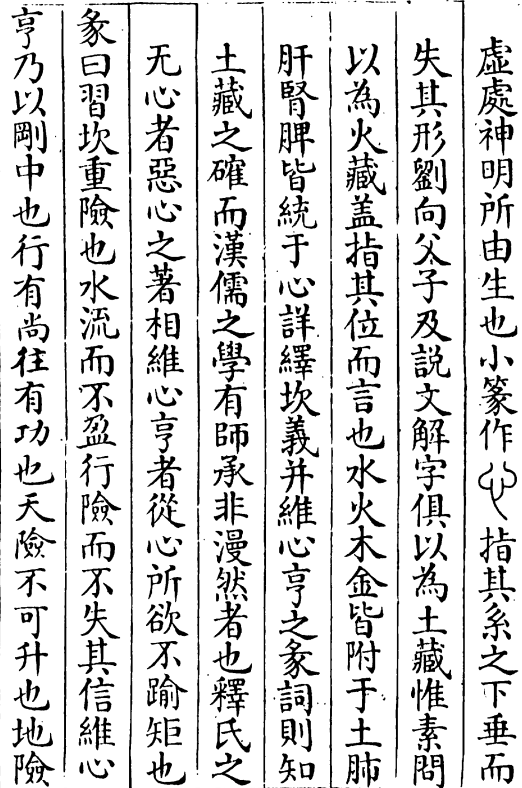 虛處神明所由生也小篆作心指其系之下垂而
失其形劉向父子及説文解字俱以為土藏惟素問
以為火藏盖指其位而言也水火木金皆附于土肺
肝腎脾皆統于心詳繹坎義并維心亨之彖詞則知
土藏之確而漢儒之學有師承非漫然者也釋氏之
无心者惡心之著相維心亨者從心所欲不踰矩也
彖曰習坎重險也水流而不盈行險而不失其信維心
亨乃以剛中也行有尚往有功也天險不可升也地險